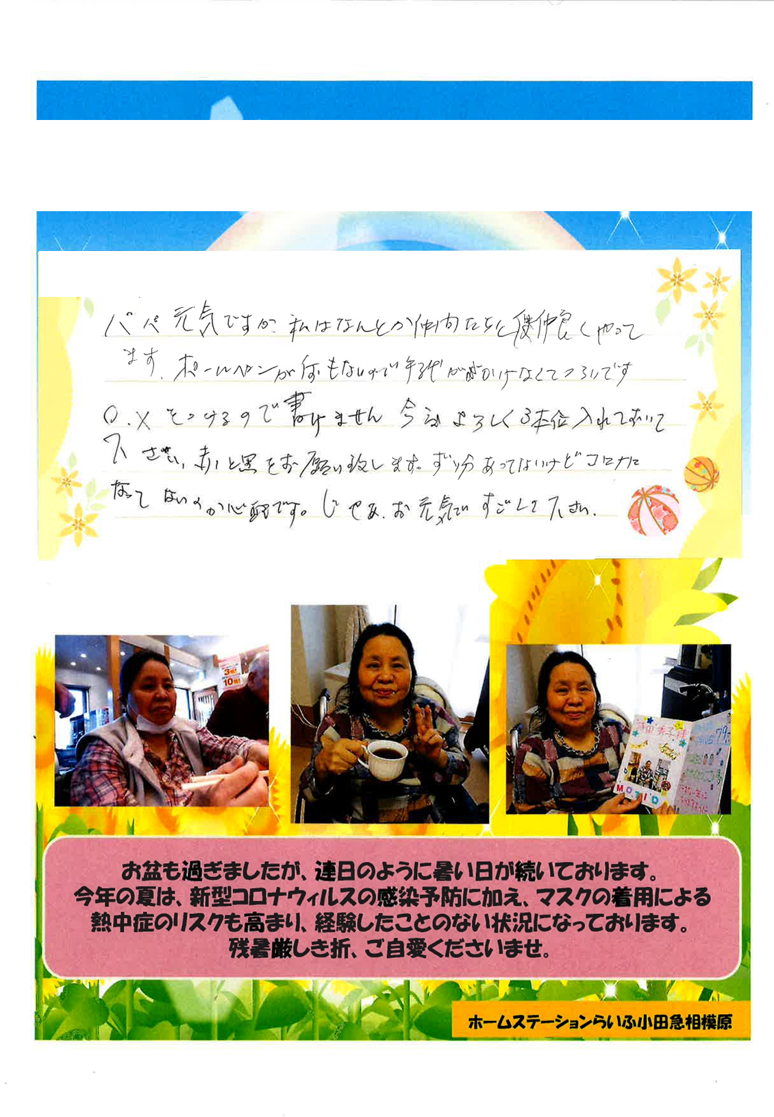 パパ元気ですか、私はなんとか仲間たちと仲良くやって
ます。ボールペンが何もないので
ので書けません 今度よろしく3本位入れておいて
下さい、赤と黒をお願い致します。ずい分あってないけどコロナに
なってないか心配です。じゃあ、お元気ですごして下さい。
3
10
79
MOMIJI
お盆も過ぎましたが、連日のように暑い日が続いております。
今年の夏は、新型コロナウィルスの感染予防に加え、マスクの着用による
熱中症のリスクも高まり、経験したことのない状況になっております。
残暑厳しき折、ご自愛くださいませ。
ホームステーションらいふ小田急相模原